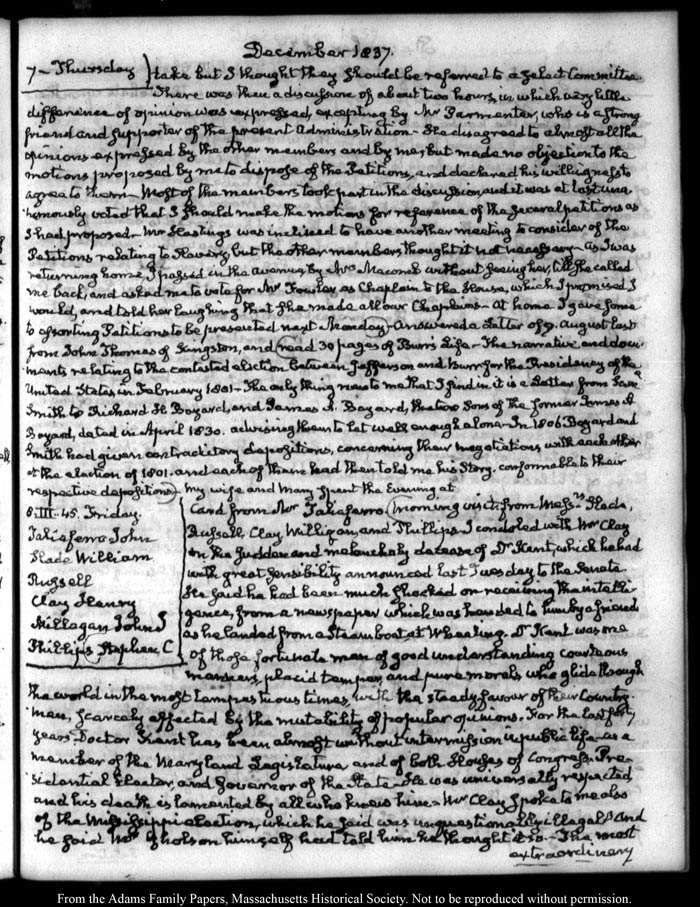 December 1837.
7 – Thursday
take but I thought they should be referred to a select Committee.
There was then a discussion of about two hours, in which very little
difference of opinion was expressed, excepting by Mr Parmenter, who is a strong
friend and supporter of the present Administration – He disagreed to almost all the
opinions expressed by the other members and by me, but made no objection to the
motions proposed by me to dispose of the Petitions, and declared his willingness to
agree to them – Most of the members took part in the discussion, and it was at last una-
nimously voted that I should make the motions for reference of the several petitions as
I had proposed – Mr Hastings was inclined to have another meeting to consider of the
Petitions relating to Slavery, but the other members thought it not necessary – As I was
returning home, I passed in the avenue by Mrs Macomb without seeing her, till she called
me back, and asked me to vote for Mr Fowler as Chaplain to the House, which I promised I
would, and told her laughing that she made all our Chaplains – At home I gave some
to assorting Petitions to be presented next Monday – Answered a Letter of 9. August last
from John Thomas of Kingston, and read 30 pages of Burr's Life – The narrative and docu-
ments relating to the contested election between Jefferson and Burr for the Presidency of the
United States, in February 1801 – The only thing new to me that I find in it is a Letter from
Smith to Richard H. Bayard, and James A. Bayard, the two Sons of the former James A
Bayard, dated in April 1830. advising them to let well enough alone – In 1806 Bayard and
Smith had given contradictory depositions, concerning their negotiations with each other
at the election of 1801. and each of them had then told me his Story, conformable to their
respective depositions – My wife and Mary spent the Evening at
8. III. 45. Friday.
Taliaferro John
Slade William
Russell
Clay Henry
Millagan John J
Phillips Stephen C
Card from Mr Taliaferro (morning visit, from Messrs Slade,
Russell, Clay, Milligan, and Phillips I condoled with Mr Clay
on the sudden and melancholy decease of Dr Kent, which he had
with great sensibility announced last Tuesday to the Senate
He said he had been much shocked on receiving the intelli-
gence, from a newspaper which was handed to him by a friend
as he landed from a Steam boat at Wheeling. Dr Kent was one
of those fortunate men of good understanding courteous
manners, placid temper, and pure morals, who glide through
the world in the most tempestuous times, with the steady favour of their Country-
men, scarcely affected by the mutability of popular opinions. For the last forty
years Doctor Kent has been almost without intermission in public life – as a
member of the Maryland Legislature, and of both Houses of Congress, Pre-
sidential Elector, and Governor of the State – He was universally respected
and his death is lamented by all who knew him – Mr Clay spoke to me also
of the Mississippi election, which he said was unquestionably illegal, and
he said Mr Gholson himself had told him he thought it so – The most
extraordinary
From the Adams Family Papers, Massachusetts Historical Society. Not to be reproduced without permission.